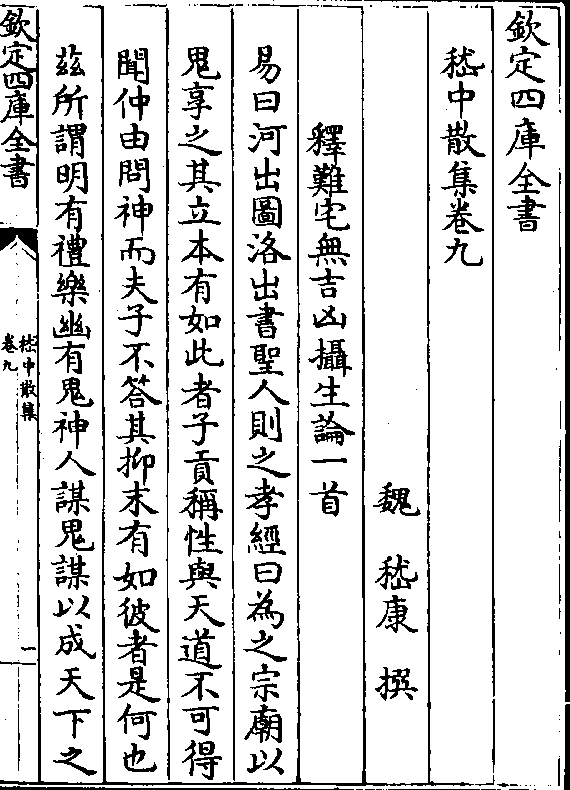 欽定四庫全書
嵇中散集卷九
魏　嵇康　撰
釋難宅無吉凶攝生論一首
易曰河出圖洛出書聖人則之孝經曰為之宗廟以
鬼享之其立本有如此者子貢稱性與天道不可得
聞仲由問神而夫子不答其抑末有如彼者是何也
茲所謂明有禮樂幽有鬼神人謀鬼謀以成天下之
欽定四庫全書
嵇中散集
卷九
一